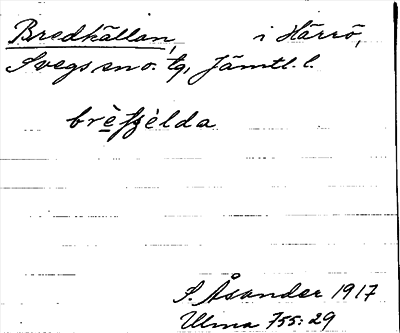 Bredkällan, i Härrö,
Svegs sn o. tg, Jämtl. l.
brèfjèlda
S. Åsander 1917
Ulma 755:29